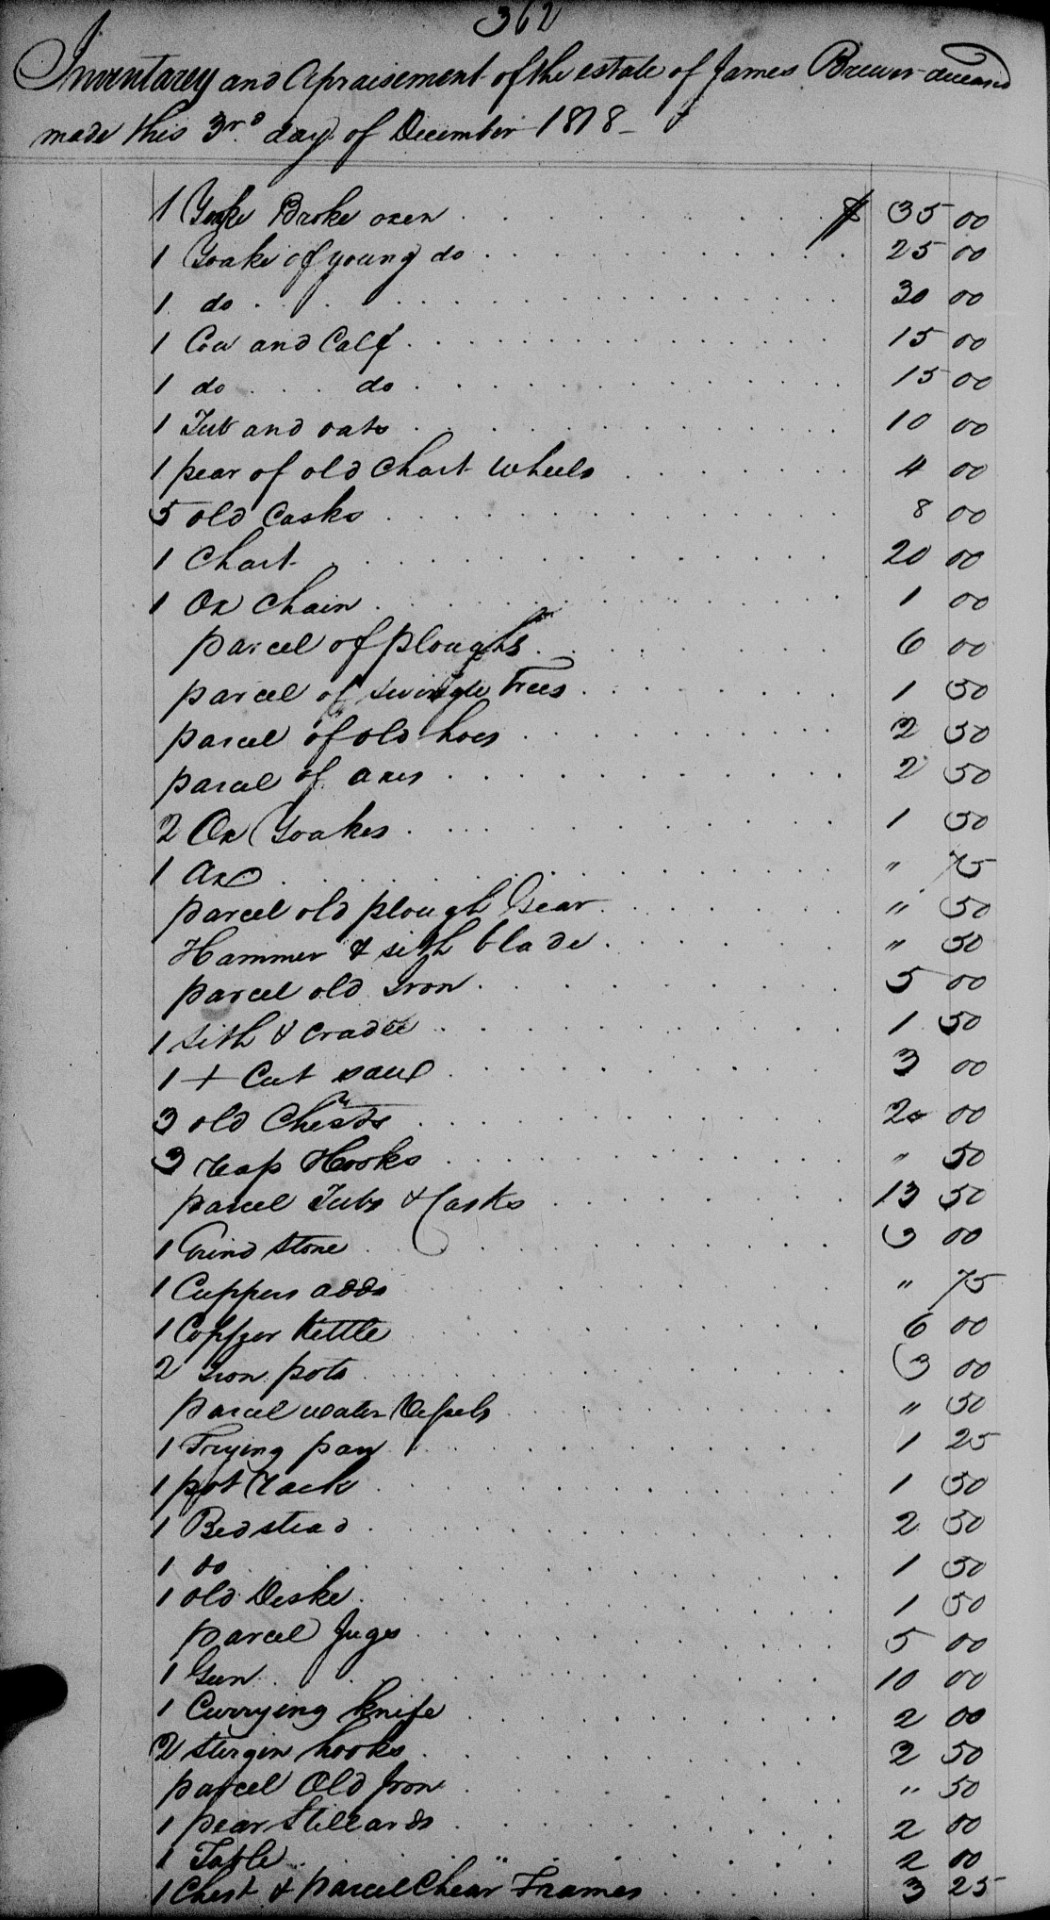 362
Inventarey and Apraisement of the estate of James Brewer deceasd
made this 3rd day of December 1818
1 Yoke Broke oxen . . . $ 35 00
1 Yoake of young do . . . 25 00
1 do . . . 30 00
1 Cow and Calf . . . 15 00
1 do . . . do . . . 15 00
1 Tub and oats . . . 10 00
1 pear of old Chart Wheels . . . 4 00
5 old Casks . . . 8 00
1 Chart . . . 20 00
1 Ox Chain . . . 1 00
parcel of ploughs . . . 6 00
parcel of swingle Trees . . . 1 50
parcel of old hoes . . . 2 50
parcel of axes . . . 2 50
2 Ox Yoakes . . . 1 50
1 Ax . . . " 75
parcel old plough Gear . . . " 50
Hammer & sith blade . . . " 50
parcel old Iron . . . 5 00
1 sith & Cradle . . . 1 50
1 + Cut saw . . . 3 00
3 old Chests . . . 2 00
3 reap Hooks . . . " 50
parcel Tubs & Casks . . . 13 50
1 Grind stone . . . 00
1 Cuppers adds . . . " 75
1 Copper Kettle . . . 6 00
2 Iron pots . . . 3 00
parcel water Vessels . . . " 50
1 Frying pan . . . 1 25
1 pot rack . . . 1 50
1 Bedstead . . . 2 50
1 do . . . 1 50
1 old Deske . . . 1 50
parcel Jugs . . . 5 00
1 Gun . . . 10 00
1 Currying knife . . . 2 00
2 sturgin hooks . . . 2 50
parcel Old Iron . . . " 50
1 pear Stillards . . . 2 00
1 Table . . . 2 00
1 Chest & parcel Chear Frames . . . 3 25